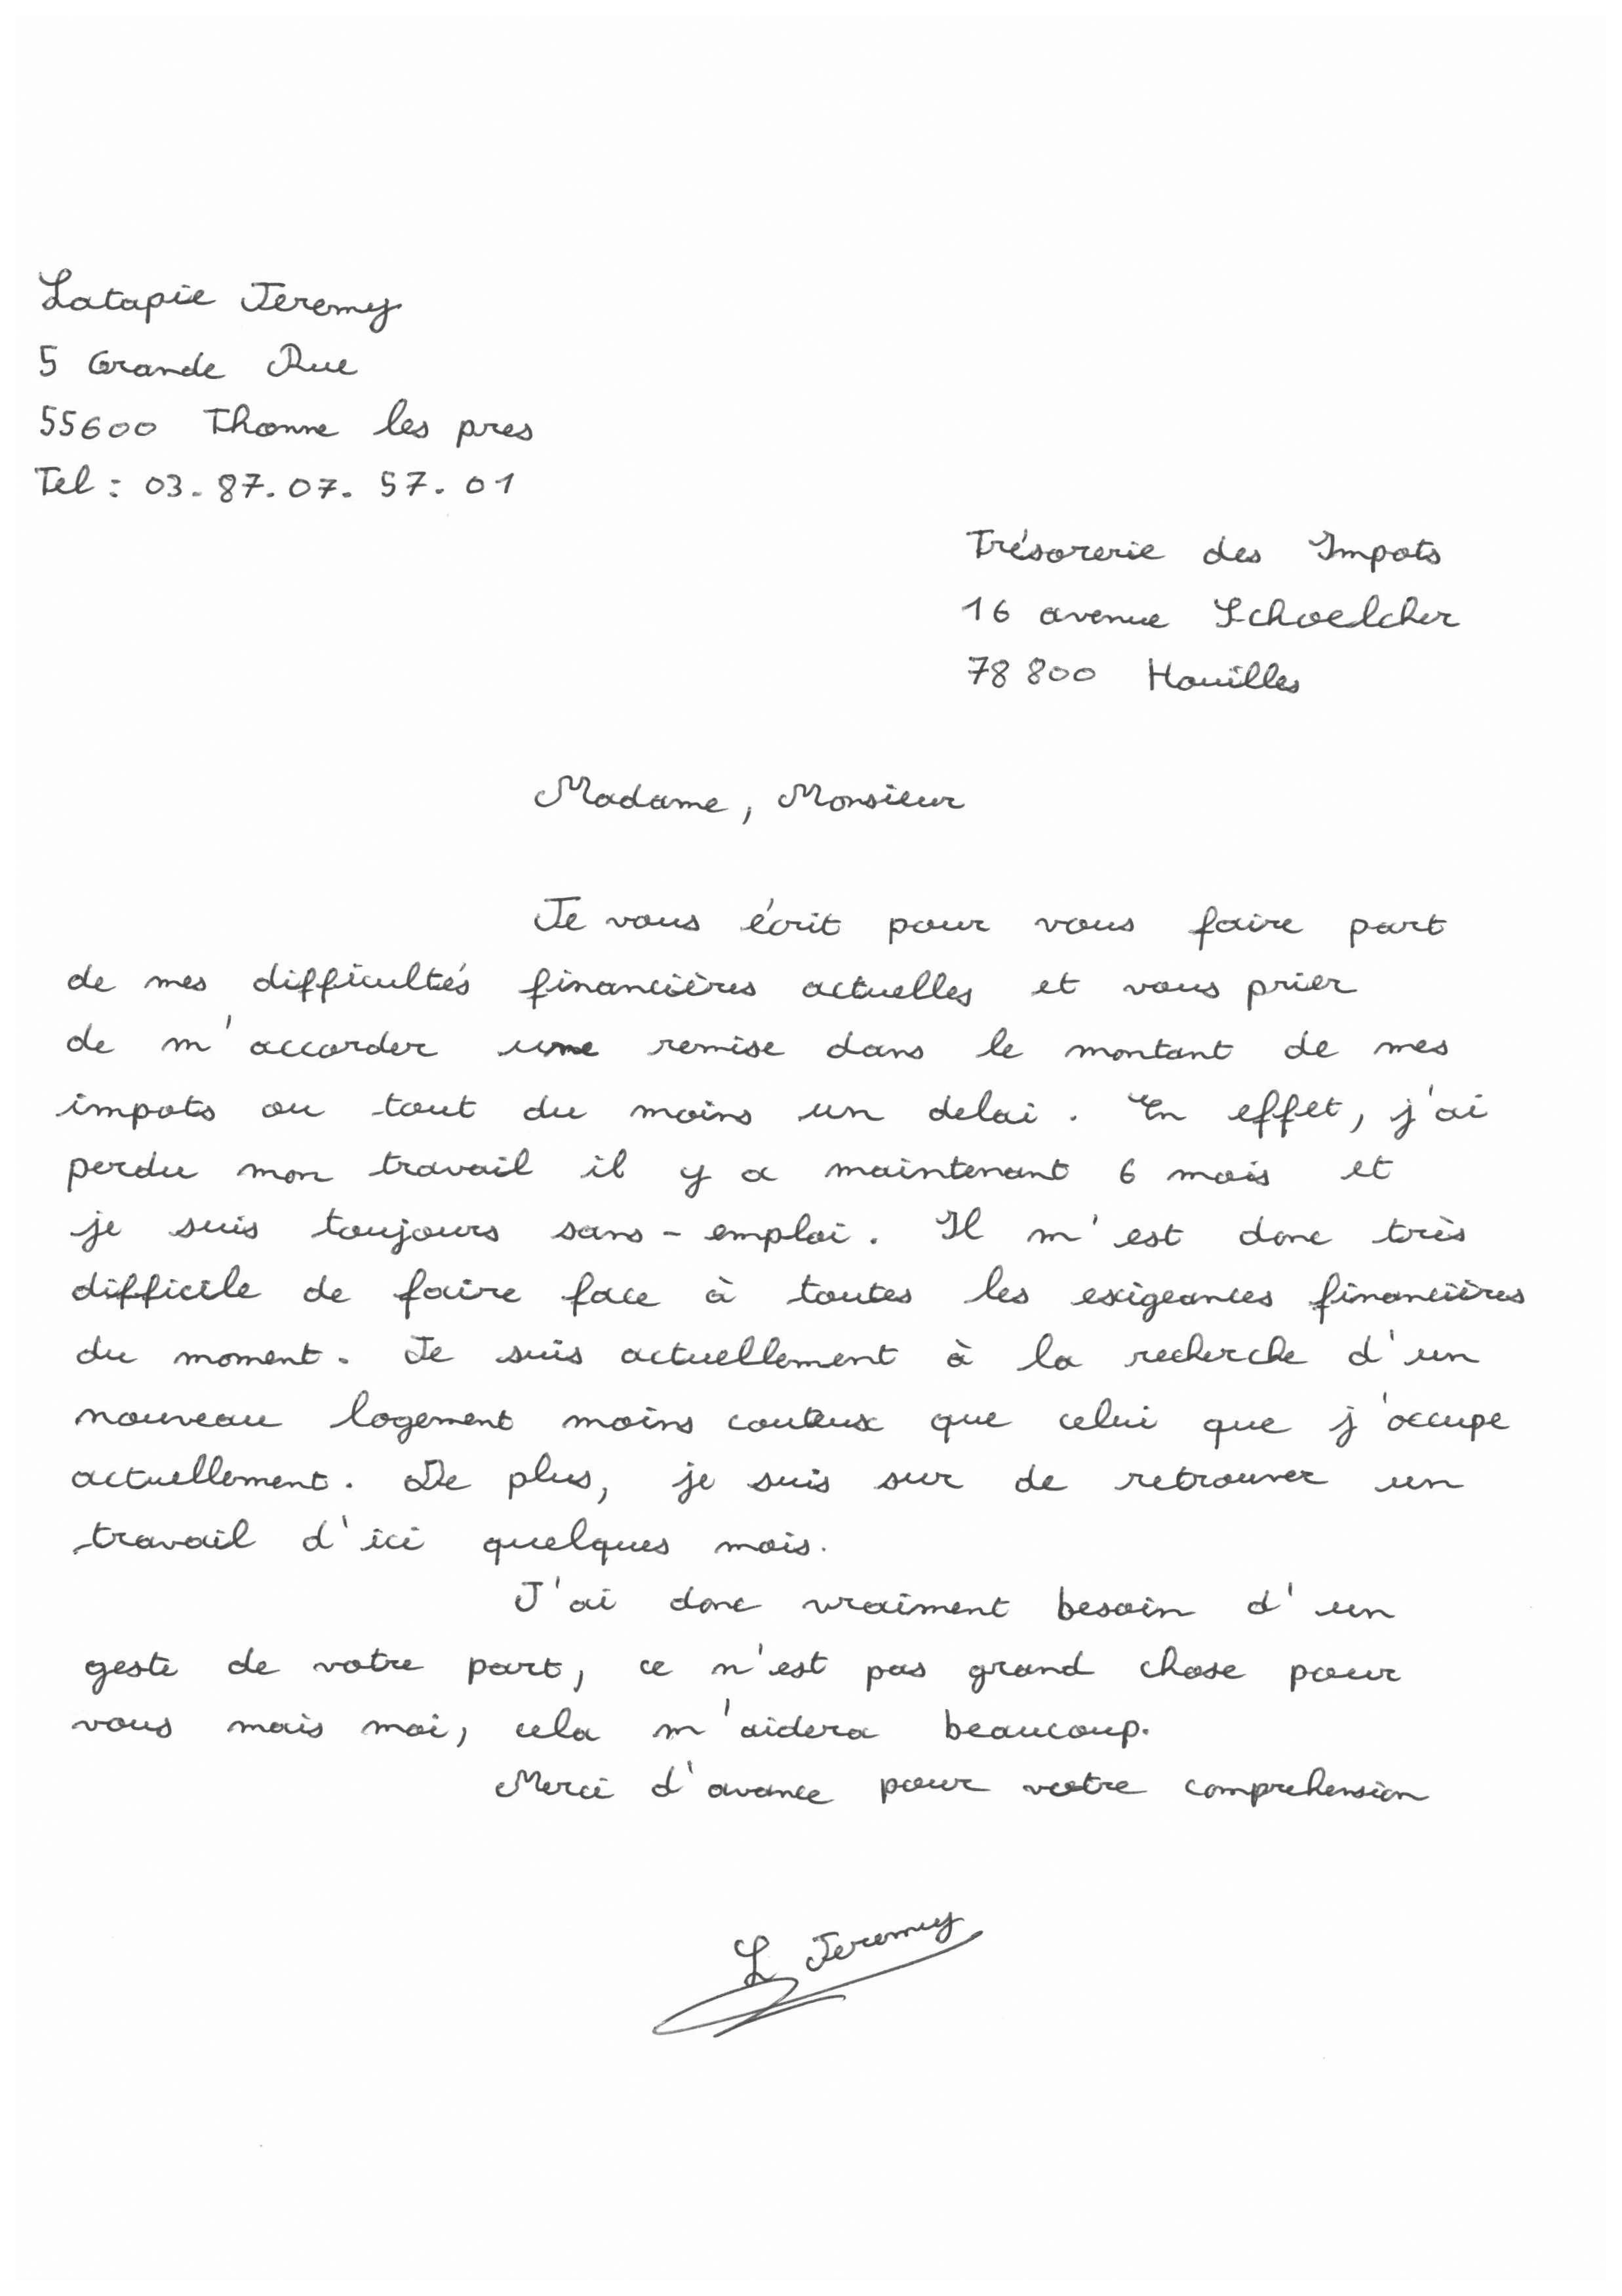 Latapie Jeremy
5 Grande Rue
55600 Thonne les pres
Tel : 03.87.07.57.01
Trésorerie des Impots
16 avenue Schoelcher
78 800 Houilles
Madame, Monsieur
Je vous écrit pour vous faire part
de mes difficultés financières actuelles et vous prier
de m'accorder une remise dans le montant de mes
impots ou tout du moins un delai. En effet, j'ai
perdu mon travail il y a maintenant 6 mois et
je suis toujours sans-emploi. Il m'est donc très
difficile de faire face à toutes les exigeances financières
du moment. Je suis actuellement à la recherche d'un
nouveau logement moins couteux que celui que j'occupe
actuellement. De plus, je suis sur de retrouver un
travail d'ici quelques mois.
J'ai donc vraiment besoin d'un
geste de votre part, ce n'est pas grand chose pour
vous mais moi, cela m'aidera beaucoup.
Merci d'avance pour votre comprehension
L Jeremy